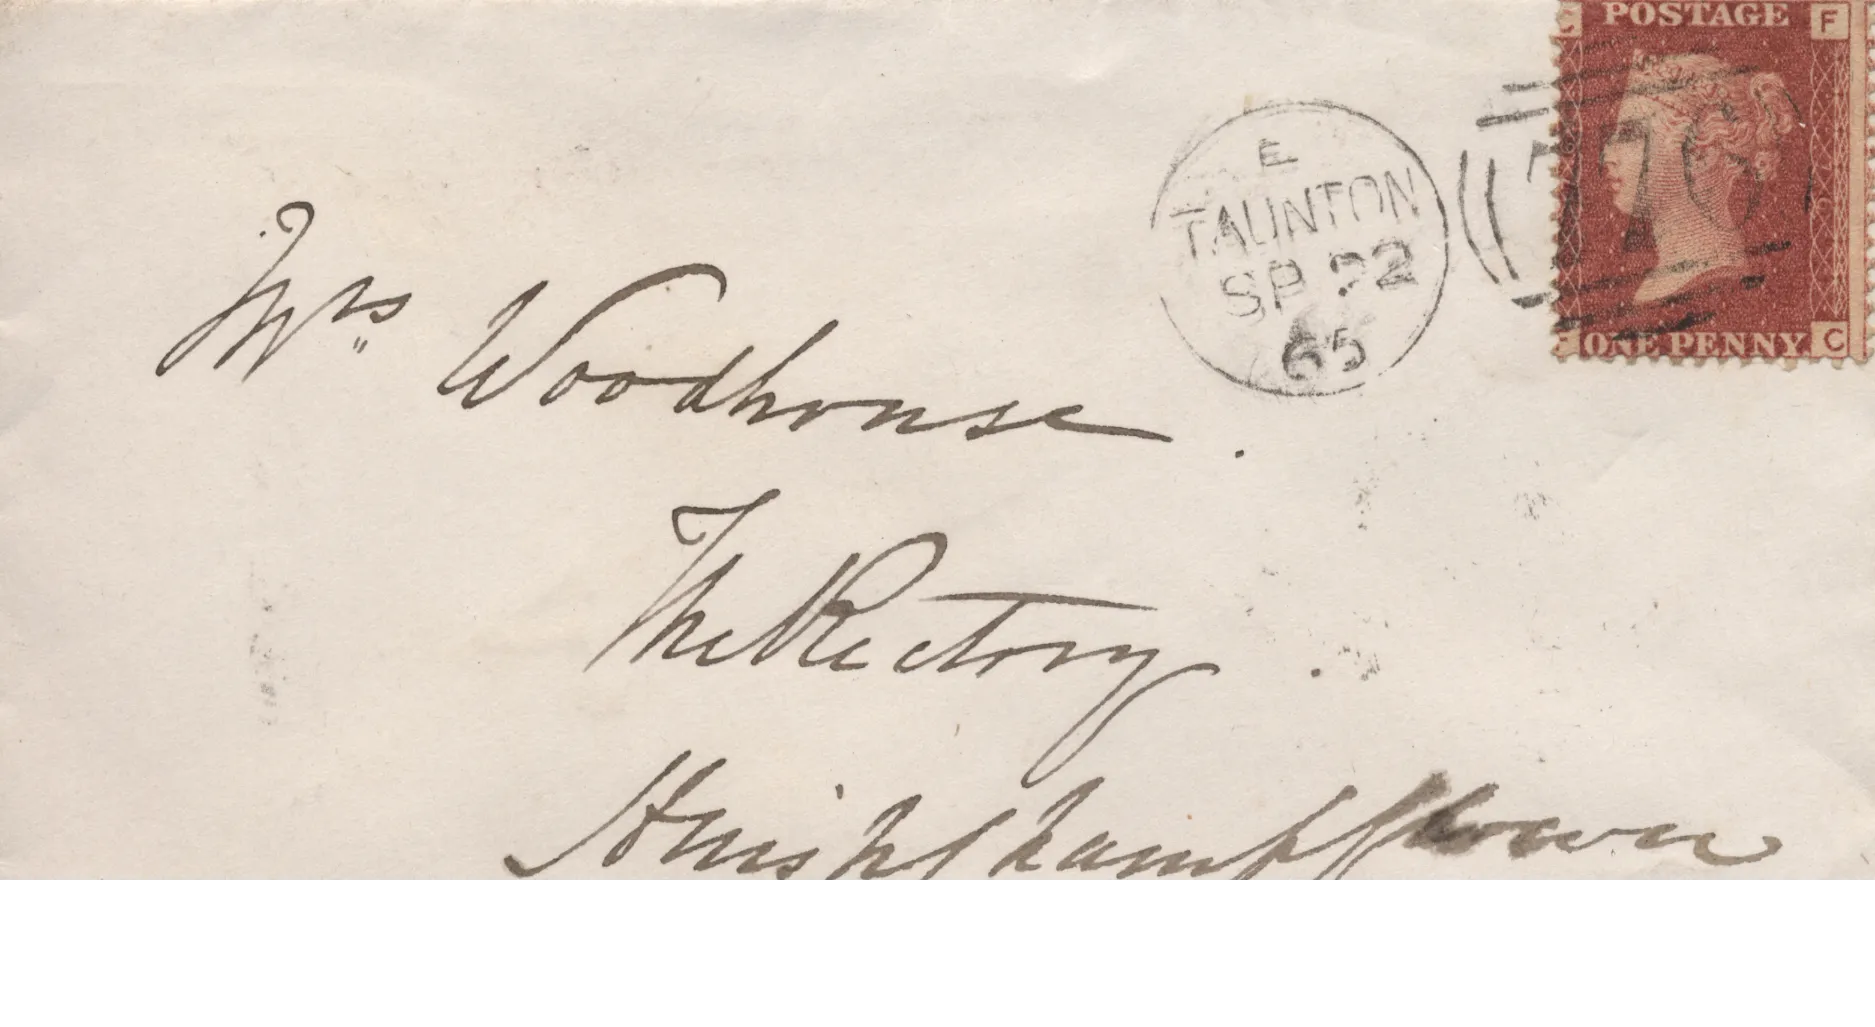 POSTAGE F
E
TAUNTON
SP 22
65
776
ONE PENNY C
Mrs Woodhouse
The Rectory